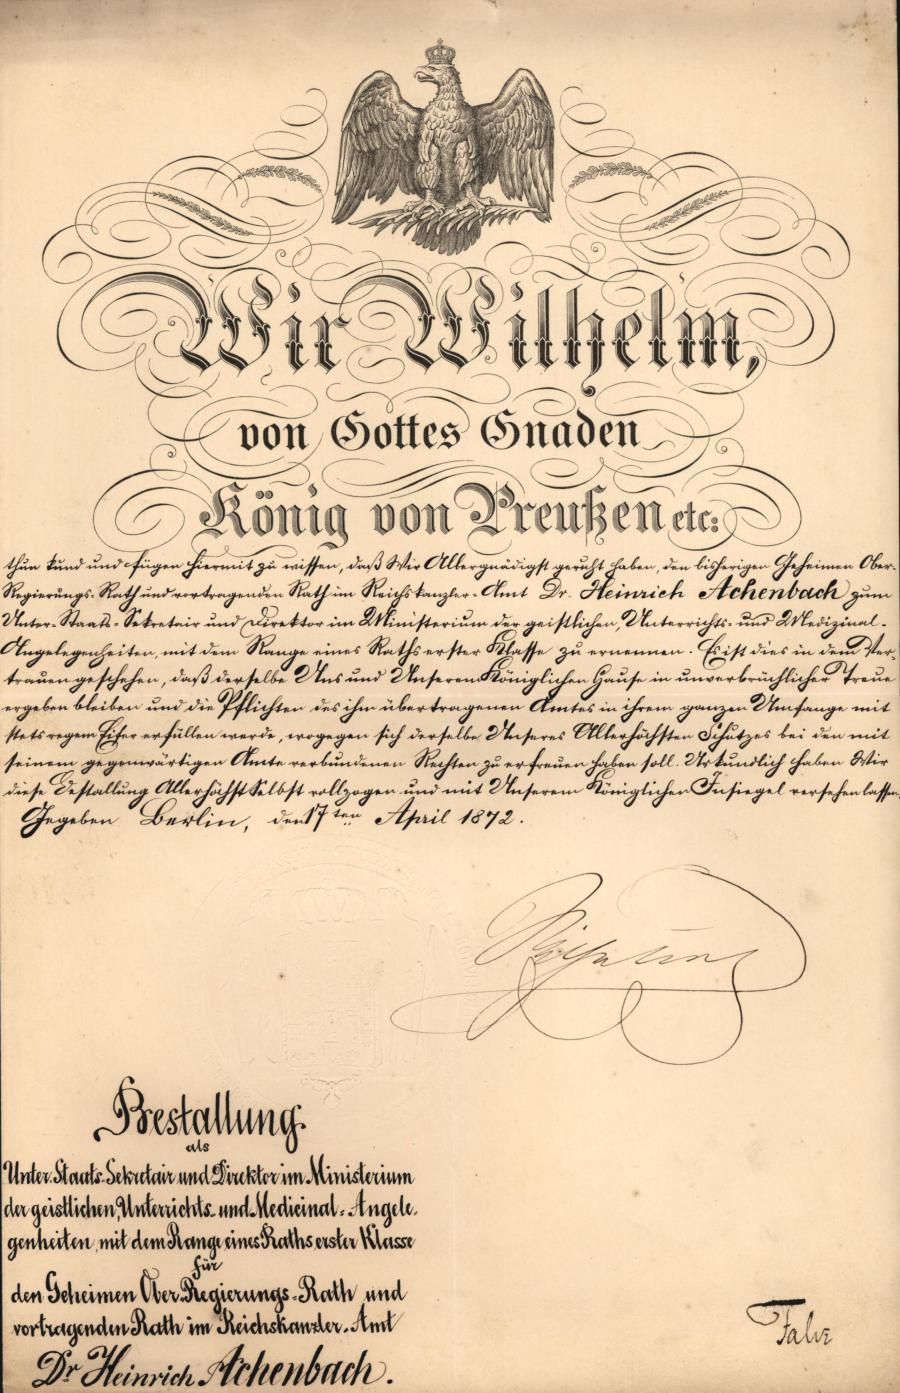 Wir Wilhelm,
von Gottes Gnaden
König von Preußen etc:
thun kund und fügen hiermit zu wissen, daß Wir Allergnädigst geruht haben, den bisherigen Geheimen Ober-
Regierungs-Rath und vortragenden Rath im Reichskanzler-Amt Dr. Heinrich Achenbach zum
Unter-Staats-Sekretair und Direktor im Ministerium der geistlichen, Unterrichts- und Medizinal-
Angelegenheiten, mit dem Range eines Raths erster Klasse zu ernennen. Es ist dies in dem Ver-
trauen geschehen, daß derselbe Uns und Unserem Königlichen Hause in unverbrüchlicher Treue
ergeben bleiben und die Pflichten des ihm übertragenen Amtes in ihrem ganzen Umfange mit
stets regem Eifer erfüllen werde, wogegen sich derselbe Unseres Allerhöchsten Schutzes bei den mit
seinem gegenwärtigen Amte verbundenen Rechten zu erfreuen haben soll. Urkundlich haben Wir
diese Bestallung Allerhöchst Selbst vollzogen und mit Unserem Königlichen Insiegel versehen lassen.
Gegeben Berlin, den 17ten April 1872.
Wilhelm
Bestallung
als
Unter-Staats-Sekretair und Direktor im Ministerium
der geistlichen, Unterrichts- und Medicinal-Angele-
genheiten, mit dem Range eines Raths erster Klasse
für
den Geheimen Ober-Regierungs-Rath und
vortragenden Rath im Reichskanzler-Amt
Dr Heinrich Achenbach.
Falk